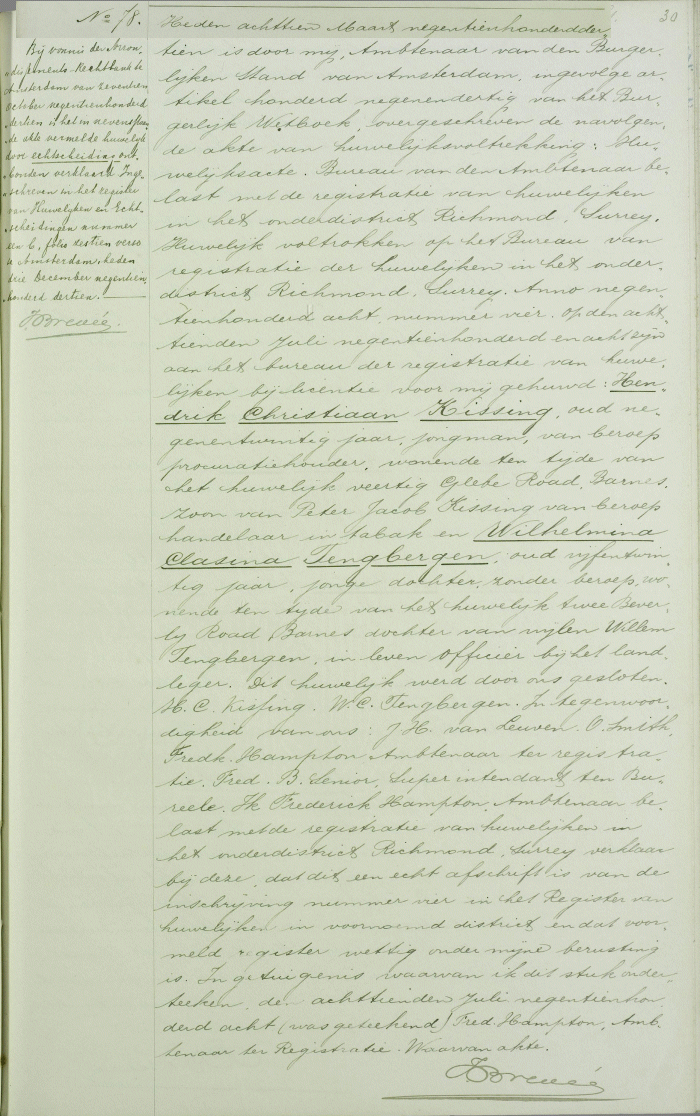 No 78.
30
Bij vonnis der Arron-
dissements-Rechtbank te
Amsterdam van zeventien
October negentienhonderd
dertien is het in nevenstaan-
de akte vermelde huwelijk
door echtscheiding ont-
bonden verklaard. Inge-
schreven in het register
van Huwelijken en Echt-
scheidingen nummer
een C, folio zestien verso
te Amsterdam, heden
drie December negentien
honderd dertien.
Heden achttien Maart negentienhonderd der-
tien is door mij, Ambtenaar van den Burger-
lijken Stand van Amsterdam, ingevolge ar-
tikel honderd negenendertig van het Bur-
gerlijk Wetboek, overgeschreven de navolgen-
de akte van huwelijksvoltrekking: Hu-
welijksacte. Bureau van den Ambtenaar be-
last met de registratie van huwelijken
in het onderdistrict Richmond, Surrey.
Huwelijk voltrokken op het Bureau van
registratie der huwelijken in het onder-
district Richmond, Surrey. Anno negen-
tienhonderd acht, nummer vier. Op den acht-
tienden Juli negentienhonderd en acht zijn
aan het bureau der registratie van huwe-
lijken bij licentie voor mij gehuwd: Hen-
drik Christiaan Kissing, oud ne-
genentwintig jaar, jongman, van beroep
procuratiehouder, wonende ten tijde van
het huwelijk veertig Glebe Road, Barnes.
zoon van Peter Jacob Kissing van beroep
handelaar in tabak en Wilhelmina
Clasina Tengbergen, oud vijfentwin-
tig jaar, jonge dochter, zonder beroep, wo-
nende ten tijde van het huwelijk twee Bever-
ly Road Barnes dochter van wijlen Willem
Tengbergen, in leven officier bij het land-
leger. Dit huwelijk werd door ons gesloten.
H. C. Kissing. W. C. Tengbergen. In tegenwoor-
digheid van ons: J. H. van Leuven. O. Smith,
Fredk. Hampton Ambtenaar ter registra-
tie. Fred. B. Senior, Superintendant ten Bu-
reele. Ik Frederick Hampton, Ambtenaar be-
last met de registratie van huwelijken in
het onderdistrict Richmond, Surrey verklaar
bij deze, dat dit een echt afschrift is van de
inschrijving nummer vier in het Register van
huwelijken in voornoemd district, en dat voor-
meld register wettig onder mijne berusting
is. In getuigenis waarvan ik dit stuk onder-
teeken, den achttienden Juli negentienhon-
derd acht (was geteekend) Fred. Hampton, Amb-
tenaar ter Registratie. Waarvan akte.